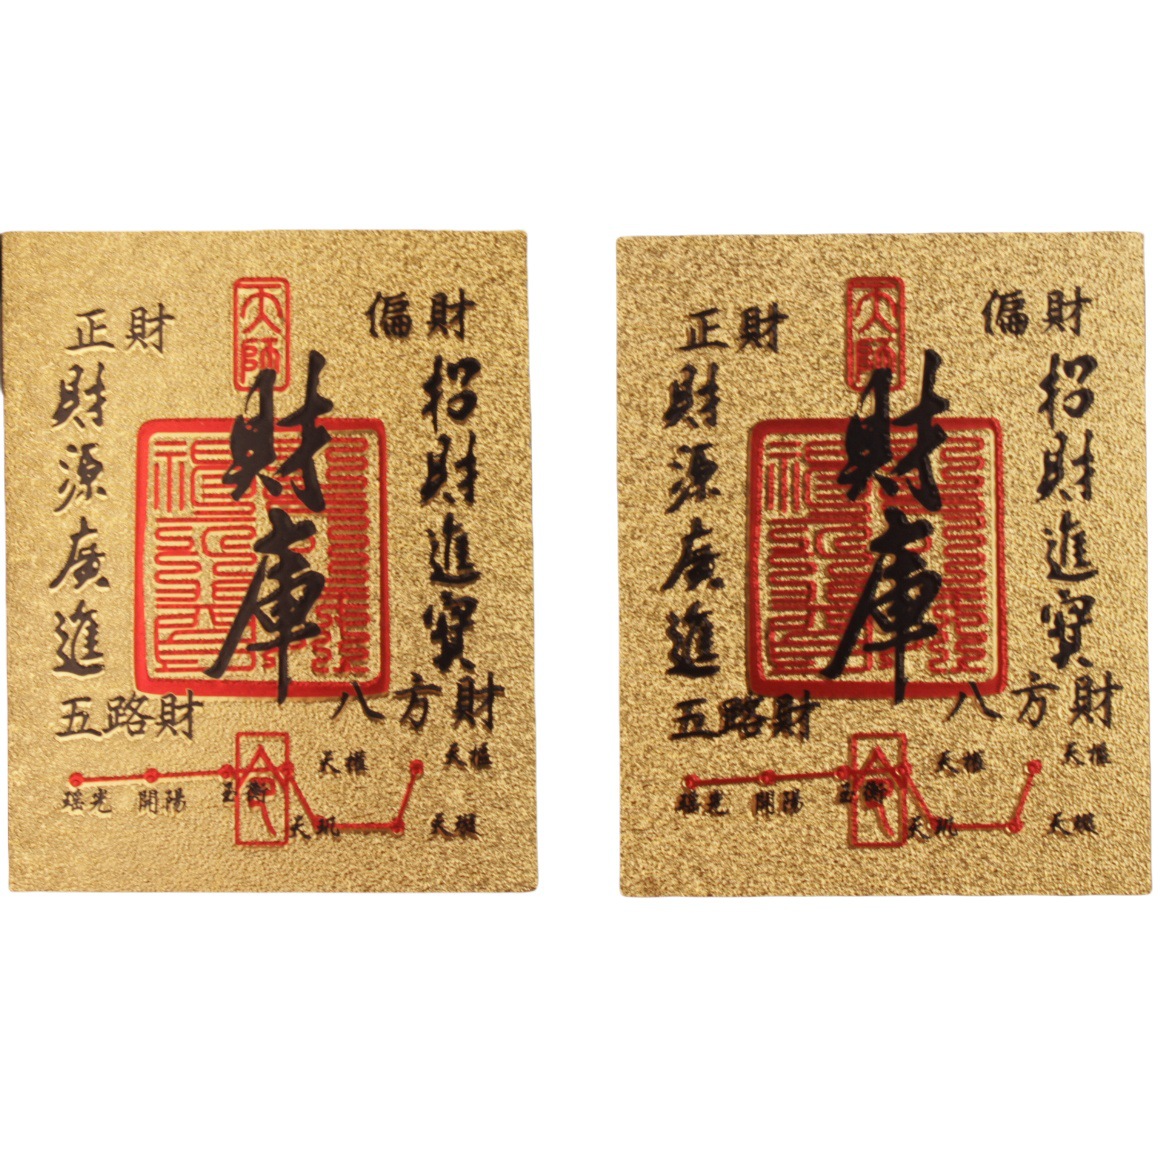 正財
偏財
天師
財庫
招財進寶
財源廣進
五路財
八方財
瑤光
開陽
玉衡
天權
天璣
天樞
令
正財
偏財
天師
財庫
招財進寶
財源廣進
五路財
八方財
瑤光
開陽
玉衡
天權
天璣
令